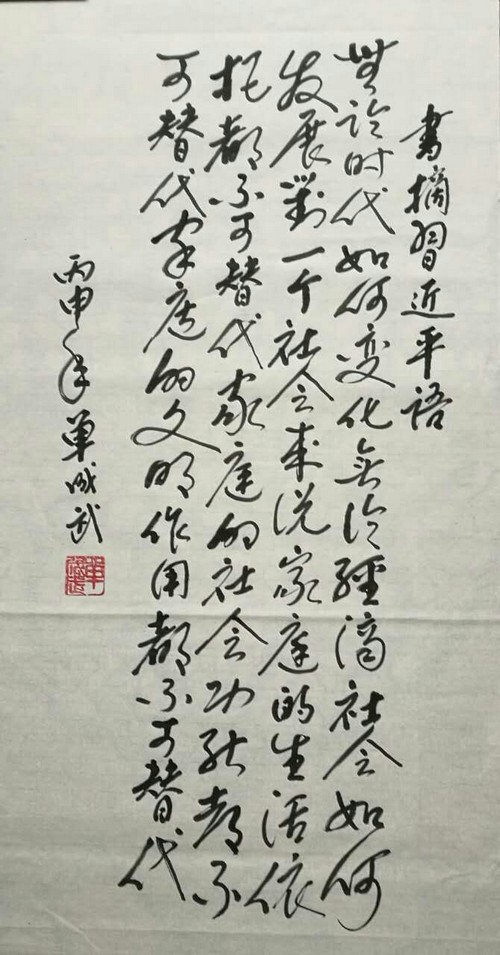 書摘習近平语
無论时代如何变化无论經濟社会如何
发展對一个社会来说家庭的生活依
托都不可替代家庭的社会功能都不
可替代家庭的文明作用都不可替代
丙申年单成武